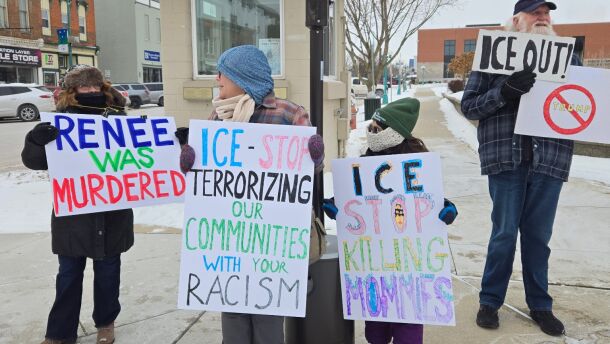 RENEE
WAS
MURDERED
ICE-STOP
TERRORIZING
OUR
COMMUNITIES
WITH YOUR
RACISM
ICE
STOP
KILLING
MOMMIES
ICE OUT!
TRUMP
STATION LASER
PLE STORE